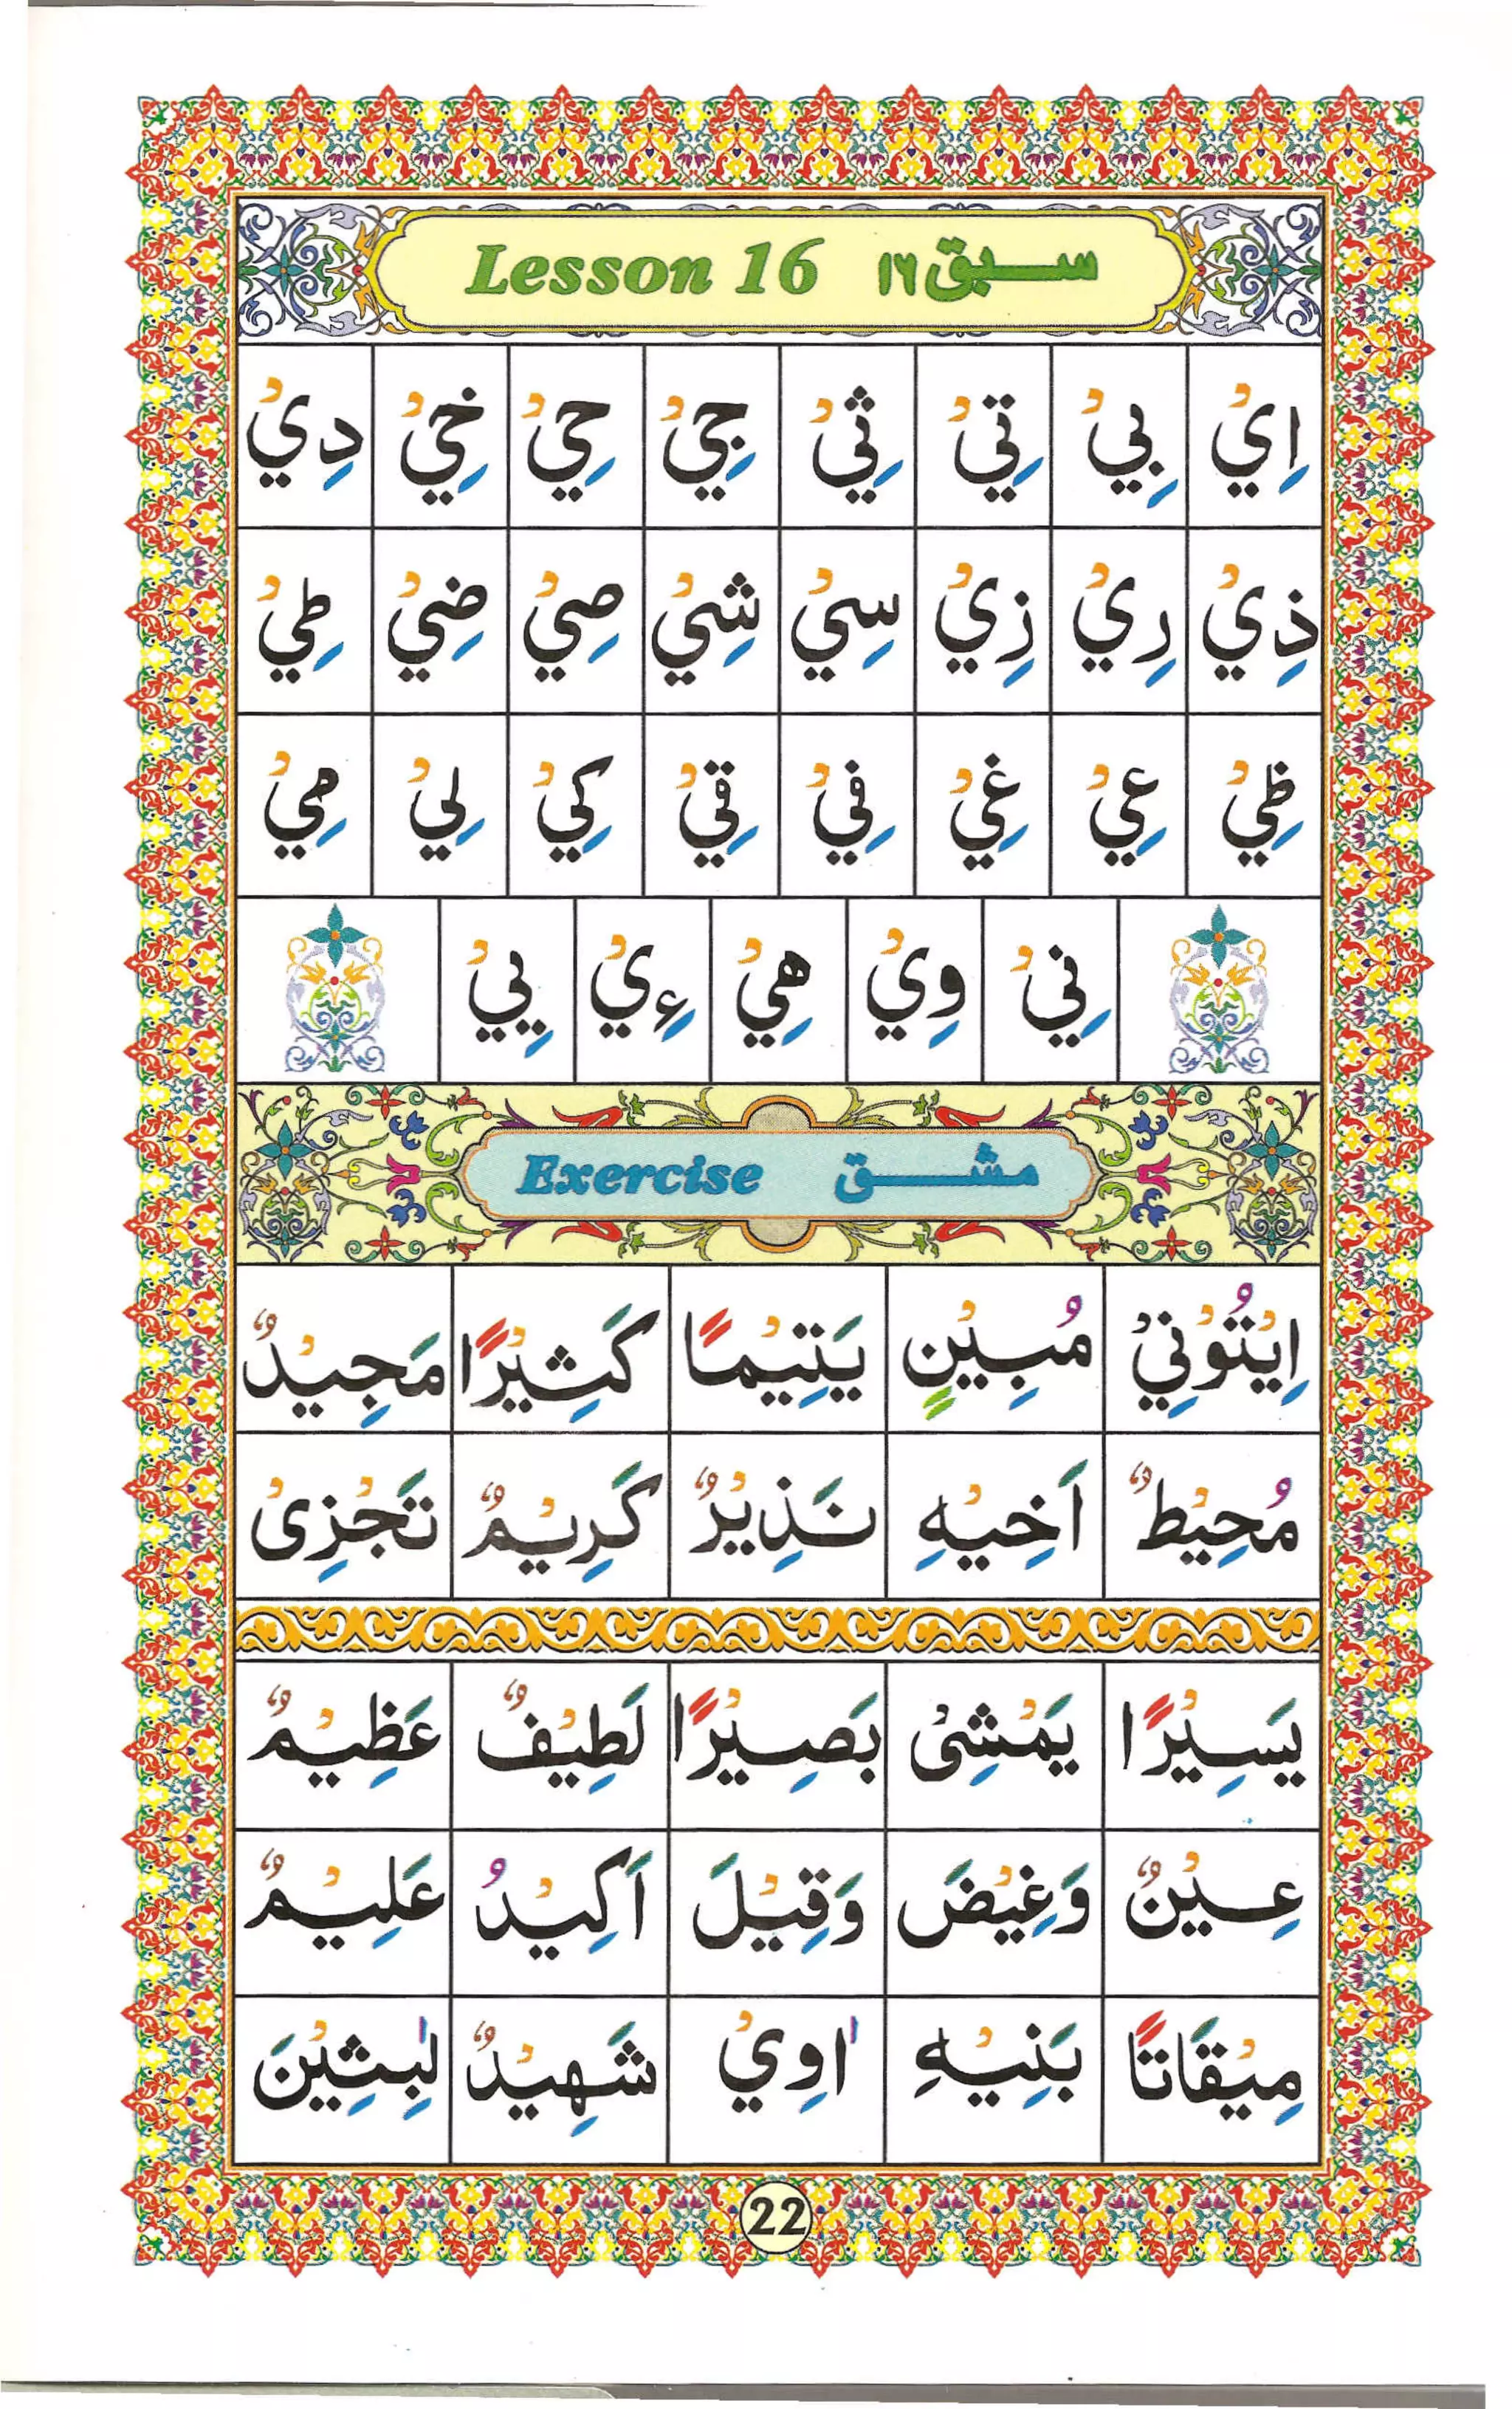 Lesson 16 سبق ١٦
اِيْ بِيْ تِيْ ثِيْ جِيْ حِيْ خِيْ دِيْ
ذِيْ رِيْ زِيْ سِيْ شِيْ صِيْ ضِيْ طِيْ
ظِيْ عِيْ غِيْ فِيْ قِيْ كِيْ لِيْ مِيْ
نِيْ وِيْ هِيْ ءِيْ يِيْ
Exercise مشق
اِيْتُوْنِيْ مُبِيْنٍ يَتِيْمًا كَثِيْرًا مَجِيْدٌ
مُحِيْطٌ اَخِيْهِ نَذِيْرٌ كَرِيْمٌ تَجْزِىْ
يَسِيْرًا يَمْشِىْ بَصِيْرًا لَطِيْفٌ عَظِيْمٌ
عِيْنٌ وَغِيْضَ وَقِيْلَ اَكِيْدُ عَلِيْمٌ
مِيْقَاتًا بَنِيْهِ اٰوِيْ شَهِيْدٌ لٰبِثِيْنَ
22